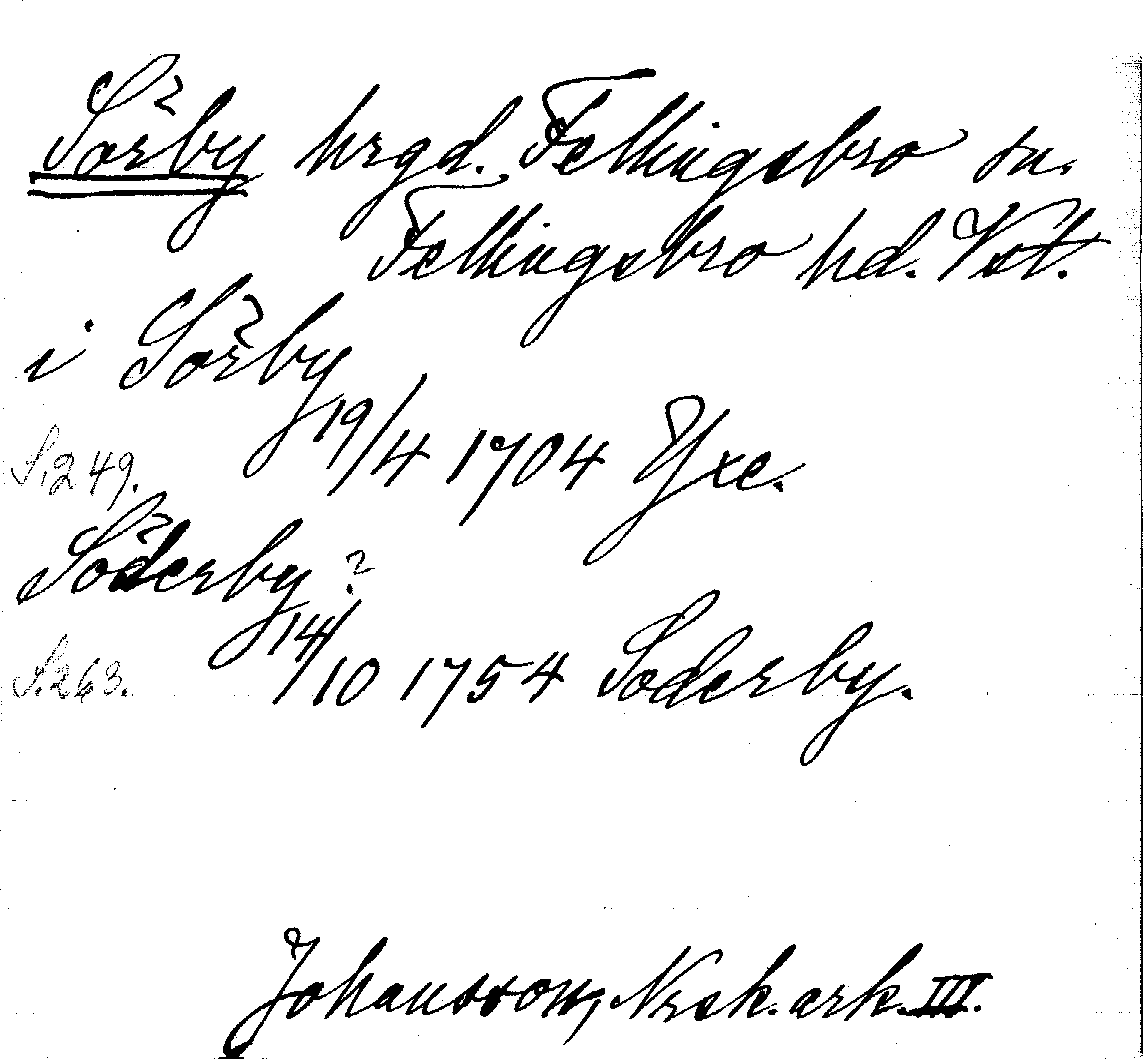 Sörby hrgd. Fellingsbro sn.
Fellingsbro hd. Vstl.
i Sörby
19/4 1704 Yxe.
S. 249.
Söderby?
14/10 1754 Söderby.
S. 263.
Johansson, Nrsk. ark. III.